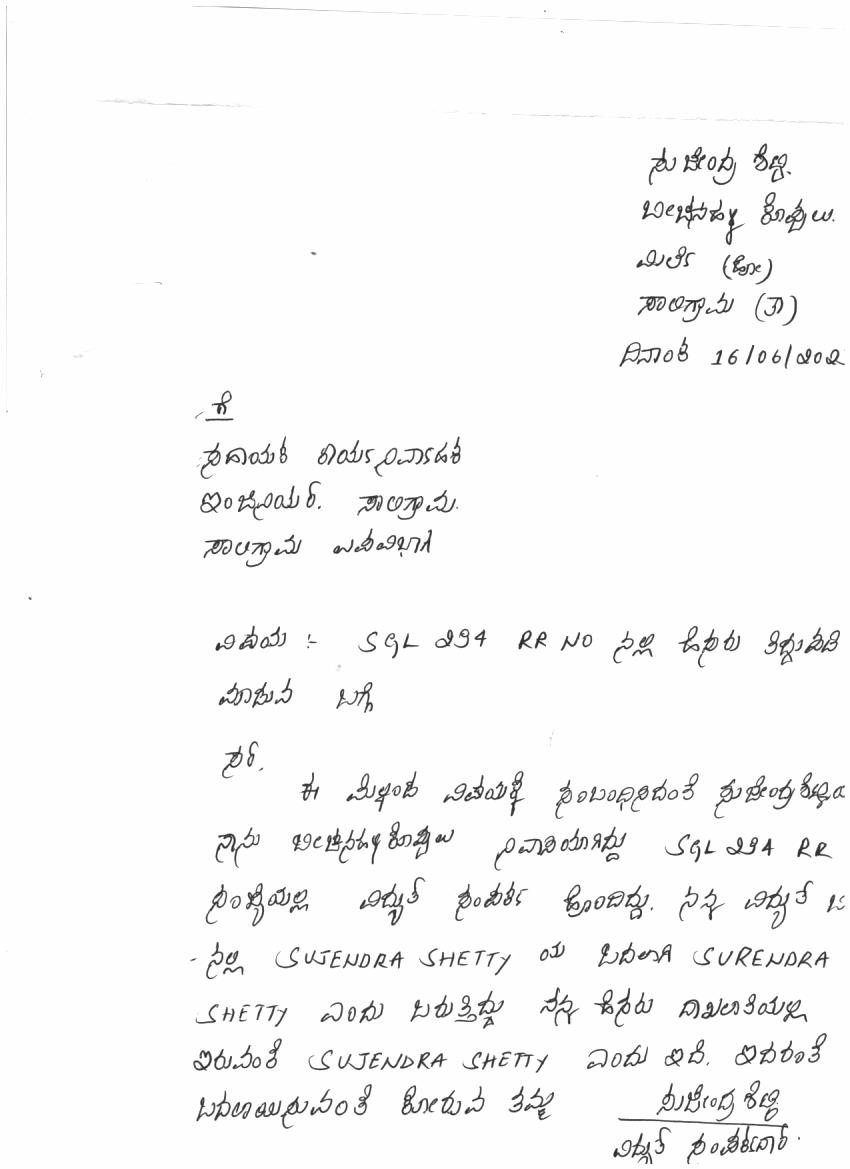 ಸುಜೇಂದ್ರ ಶೆಟ್ಟಿ.
ಬೀಚನಹಳ್ಳಿ ಕೊಪ್ಪಲು.
ಮಿರ್ಲೆ (ಹೋ)
ಸಾಲಿಗ್ರಾಮ (ತಾ)
ದಿನಾಂಕ 16/06/202
ಗೆ
ಸಹಾಯಕ ಕಾರ್ಯನಿರ್ವಾಹಕ
ಇಂಜಿನಿಯರ್. ಸಾಲಿಗ್ರಾಮ.
ಸಾಲಿಗ್ರಾಮ ಉಪವಿಭಾಗ
ವಿಷಯ :- SGL 294 RR NO ನಲ್ಲಿ ಹೆಸರು ತಿದ್ದುಪಡಿ
ಮಾಡುವ ಬಗ್ಗೆ
ಸರ್.
ಈ ಮೇಲ್ಕಂಡ ವಿಷಯಕ್ಕೆ ಸಂಬಂಧಿಸಿದಂತೆ ಸುಜೇಂದ್ರಶೆಟ್ಟಿಯ
ನಾನು ಬೀಚನಹಳ್ಳಿಕೊಪ್ಪಲು ನಿವಾಸಿಯಾಗಿದ್ದು SGL 294 RR
ಸಂಖ್ಯೆಯಲ್ಲಿ ವಿದ್ಯುತ್ ಸಂಪರ್ಕ ಹೊಂದಿದ್ದು. ನನ್ನ ವಿದ್ಯುತ್ ಬಿ
-ನಲ್ಲಿ SUJENDRA SHETTY ಯ ಬದಲಾಗಿ SURENDRA
SHETTY ಎಂದು ಬರುತ್ತಿದ್ದು ನನ್ನ ಹೆಸರು ದಾಖಲಾತಿಯಲ್ಲಿ
ಇರುವಂತೆ SUJENDRA SHETTY ಎಂದು ಇದೆ. ಇದರಂತೆ
ಬದಲಾಯಿಸುವಂತೆ ಕೋರುವ ತಮ್ಮ ಸುಜೇಂದ್ರಶೆಟ್ಟಿ
ವಿದ್ಯುತ್ ಸಂಪರ್ಕದಾರ.